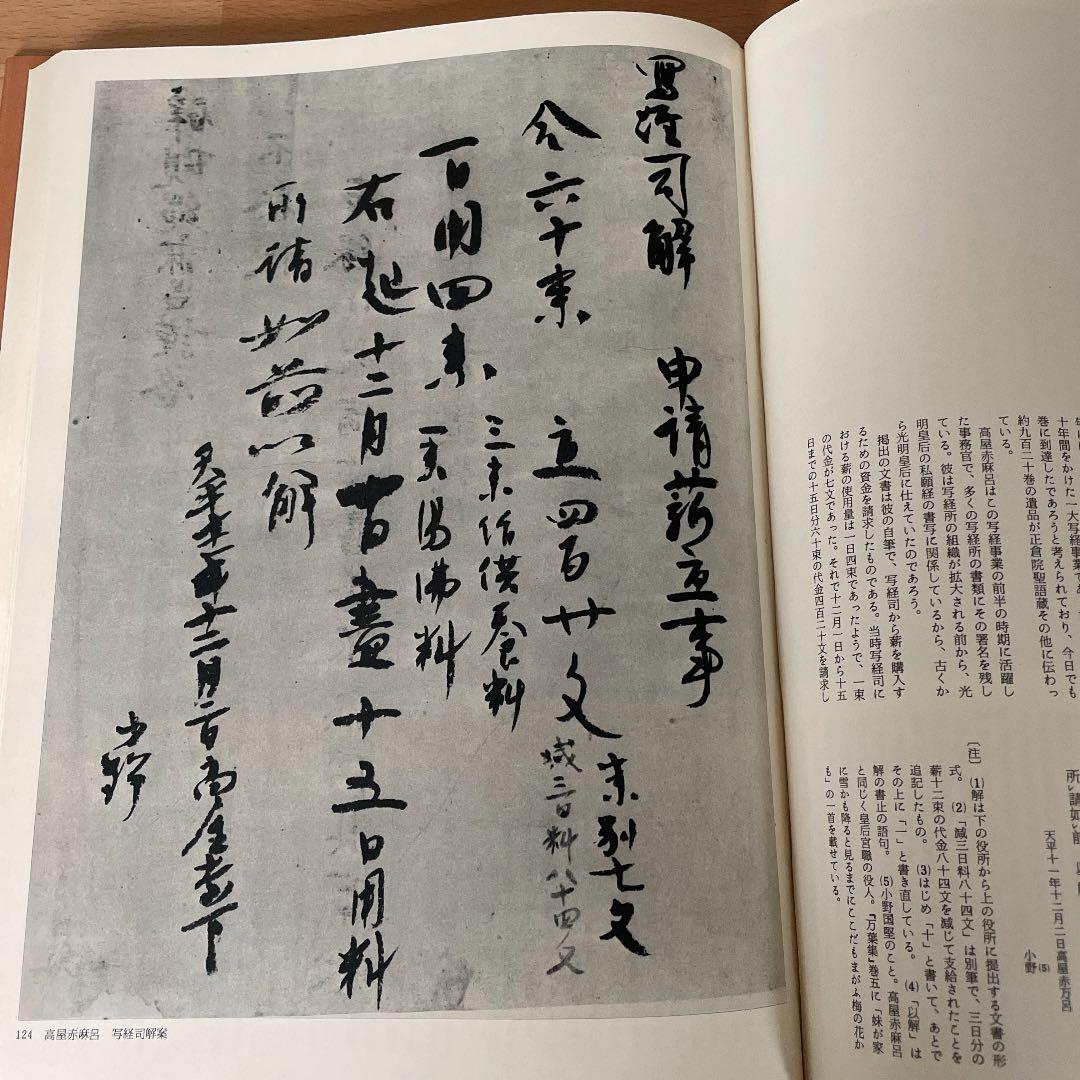 十年間をかけた一大写経事業であ
巻に到達したであろうと考えられており、今日でも
約九百二十巻の遺品が正倉院聖語蔵その他に伝わっ
ている。
高屋赤麻呂はこの写経事業の前半の時期に活躍し
た事務官で、多くの写経所の書類にその署名を残し
ている。彼は写経所の組織が拡大される前から、光
明皇后の私願経の書写に関係しているから、古くか
ら光明皇后に仕えていたのであろう。
掲出の文書は彼の自筆で、写経司から薪を購入す
るための資金を請求したものである。当時写経司に
おける薪の使用量は一日四束であったようで、一束
の代金が七文であった。それで十二月一日から十五
日までの十五日分六十束の代金四百二十文を請求し
所レ請如レ前
天平十一年十二月二日高屋赤万呂
小野(5)
〔注〕 (1)解は下の役所から上の役所に提出する文書の形
式。 (2)「減三日料八十四文」は別筆で、三日分の
薪十二束の代金八十四文を減じて支給されたことを
追記したもの。 (3)はじめ「十」と書いて、あとで
その上に「一」と書き直している。 (4)「以解」は
解の書止の語句。 (5)小野国堅のこと。高屋赤麻呂
と同じく皇后宮職の役人。『万葉集』巻五に「妹が家
に雪かも降ると見るまでにここだもまがふ梅の花か
も」の一首を載せている。
写經司解 申請薪直事
合六十束 直四百廿文 束別七文
減三日料八十四文
一日用四束 三束作供養料
一束湯沸料
右起十二月一日盡十五日用料
所請如前以解
天平十一年十二月二日高屋赤万呂
小野
124 高屋赤麻呂 写経司解案